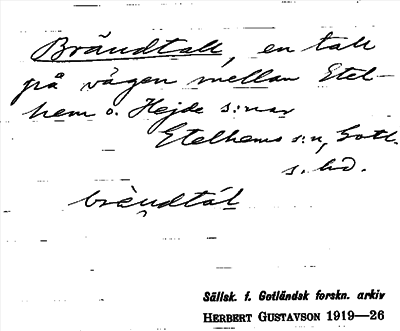 Brändtall, en tall
på vägen mellan Etel-
hem o. Hejde s:nar
Etelhems s:n, Gotl.
s. hd.
brèndtál
Sällsk. f. Gotländsk forskn. arkiv
HERBERT GUSTAVSON 1919—26